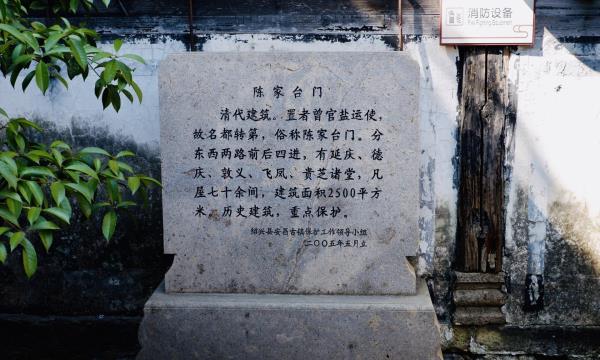 消防设备
Fire Fighting Equipment
陈家台门
清代建筑。置者曾官盐运使，
故名都转第，俗称陈家台门。分
东西两路前后四进，有延庆、德
庆、敦义、飞凤、贵芝诸堂，凡
屋七十余间，建筑面积2500平方
米。历史建筑，重点保护。
绍兴县安昌古镇保护工作领导小组
二〇〇五年五月立